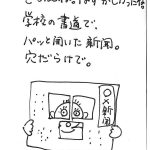 学校の書道で、
パッと開いた新聞。
穴だらけで。
〇×新聞